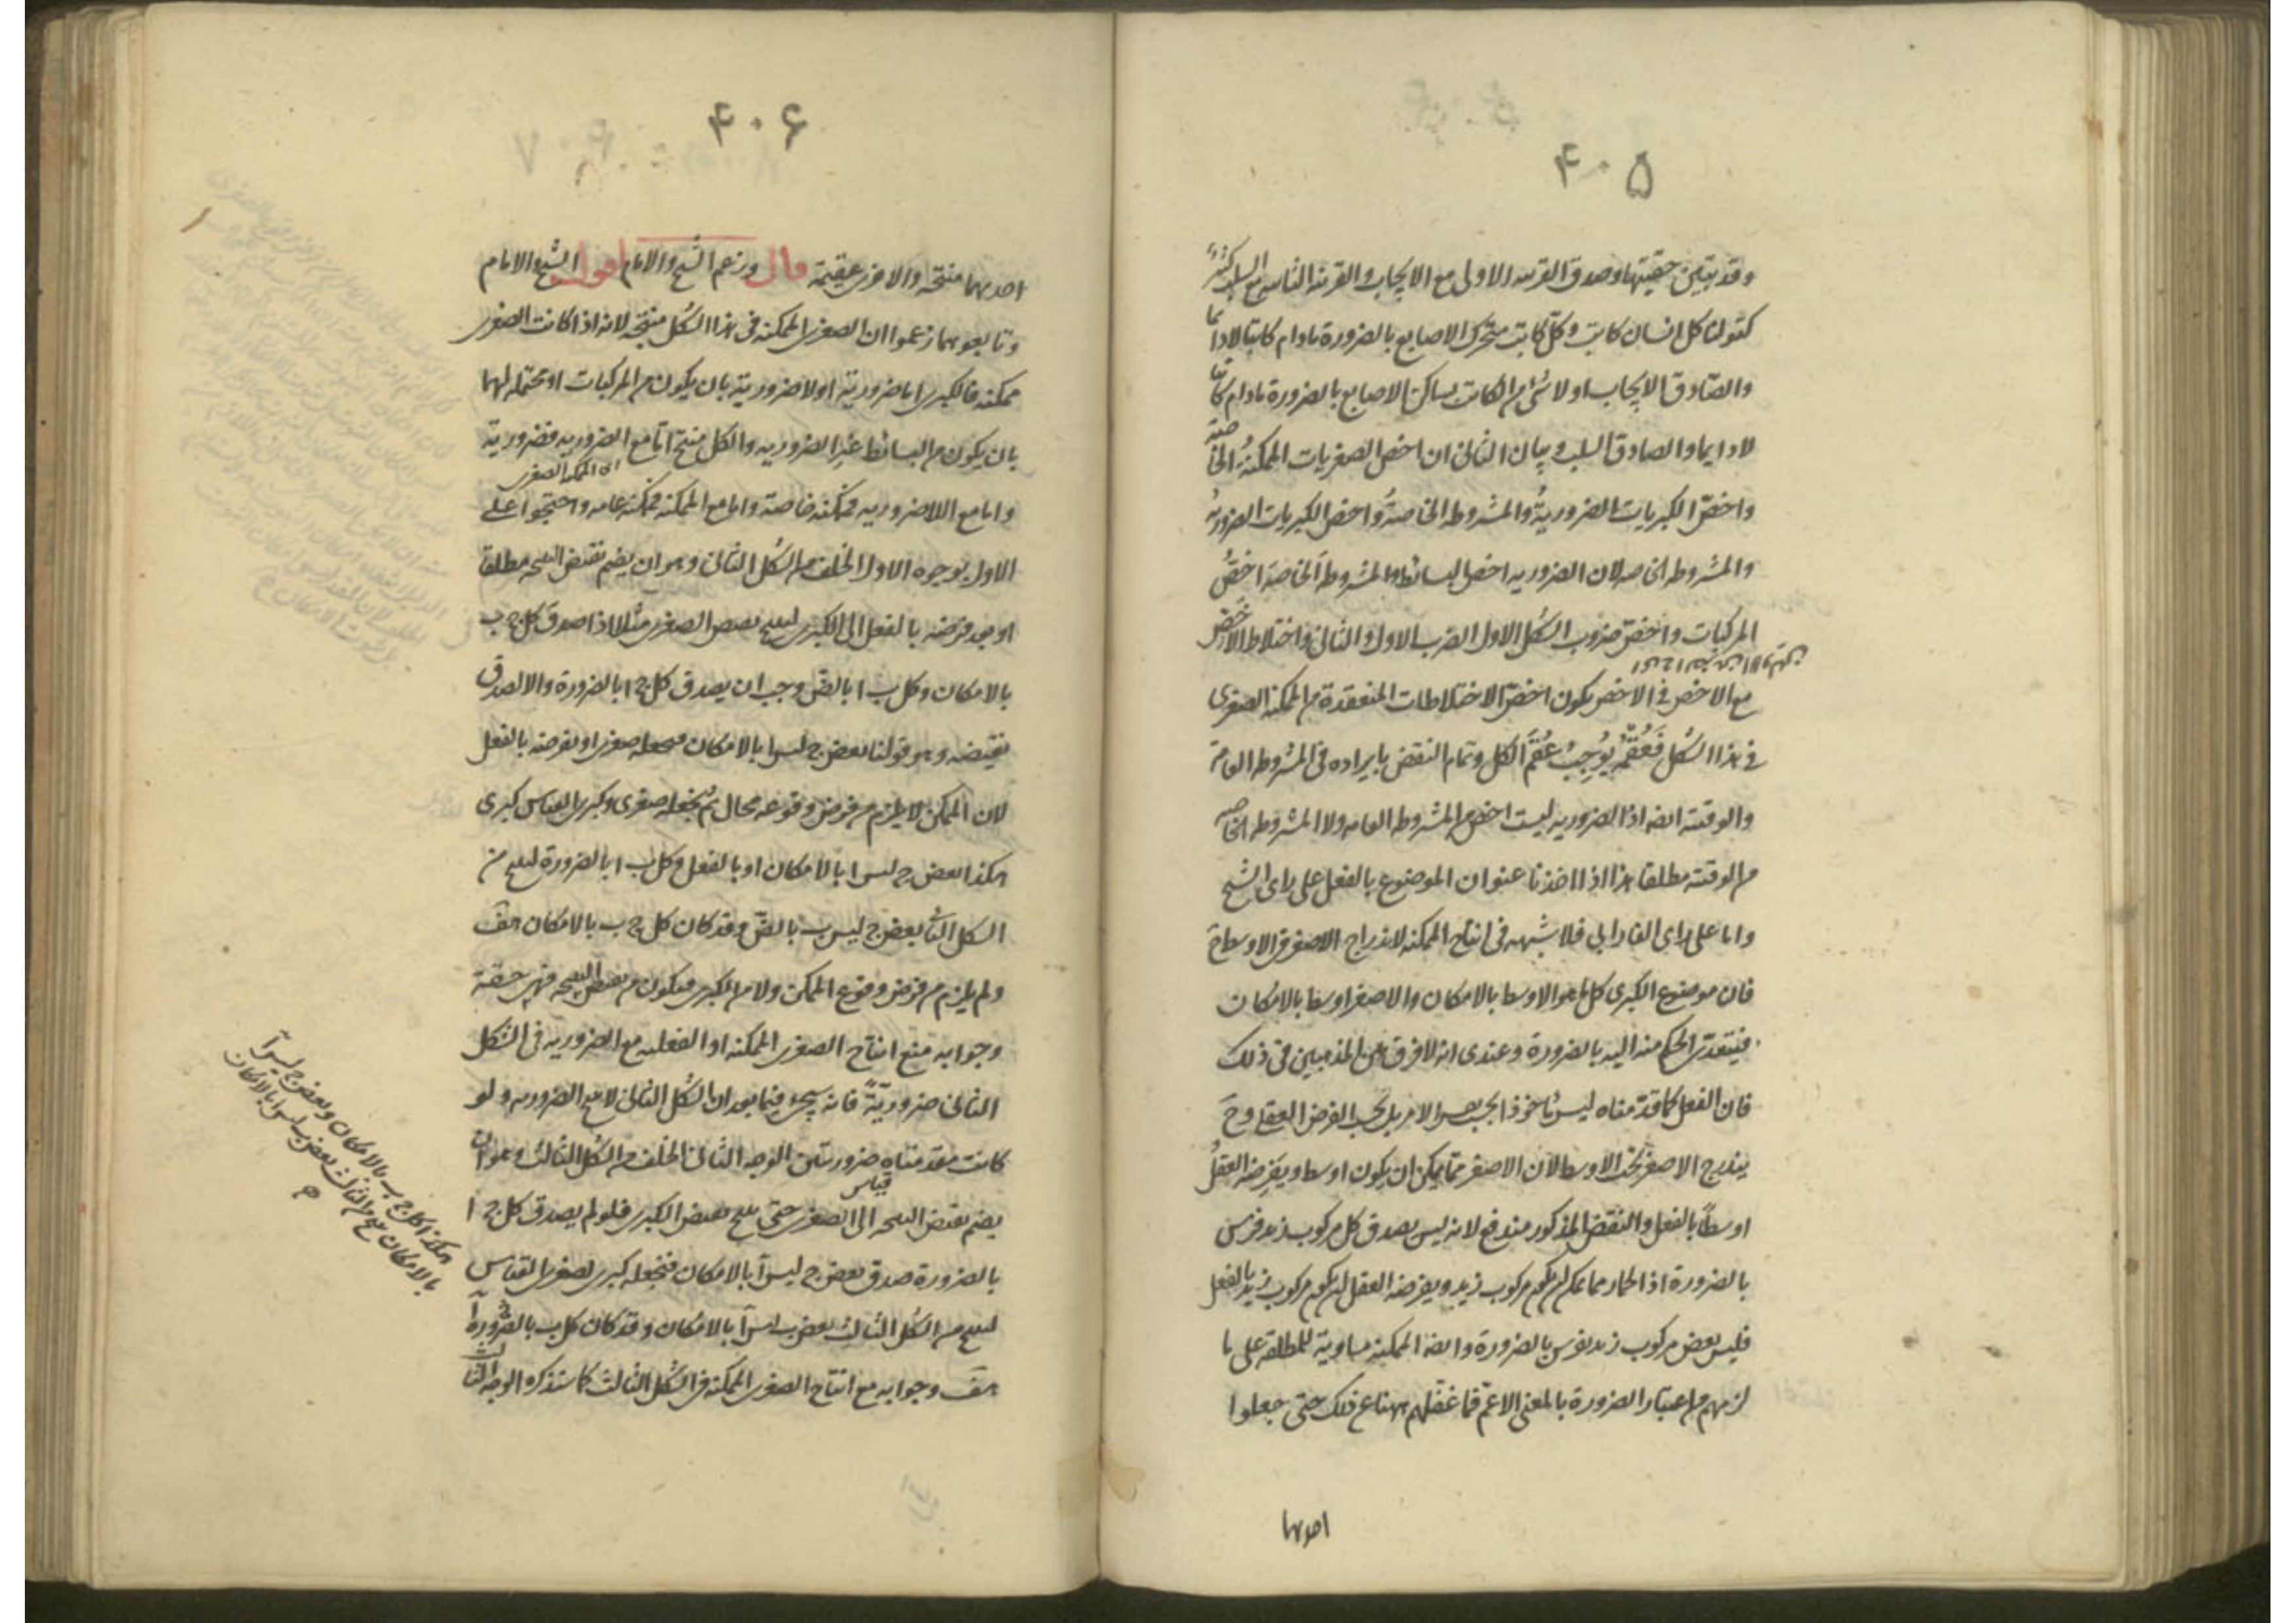 ۴۰۵
وقد يتبين حقيتها وصدق القرينة الاولى مع الايجاب والقرينة الثانية مع السلب كثيرا
كقولنا كل انسان كاتب وكل كاتب متحرك الاصابع بالضرورة مادام كاتبا لادائما
والصادق الايجاب او لا شئ من الكاتب بساكن الاصابع بالضرورة مادام كاتبا
لادايما والصادق السلب وبيان الثانى ان اخص الصغريات الممكنة الخاصة
واخص الكبريات الضرورية والمشروطه الخاصة واخص الكبريات الضرورية
والمشروطه الخاصه لان الضروريه اخص البسائط والمشروطه الخاصه اخص
المركبات واخص ضروب الشكل الاول الضرب الاول والثانى واختلاط الاخص
مع الاخص فى الاخص يكون اخص الاختلاطات المنعقدة من الممكنه الصغرى
فى هذا الشكل فعقمه يوجب عقم الكل وتمام النقض بايراده فى المشروطه العامة
والوقتيه ايضا اذ الضروريه ليست اخص من المشروطه العامه ولا المشروطه الخاصه
من الوقتيه مطلقا هذا اذا اخذنا عنوان الموضوع بالفعل على راى الشيخ
واما على راى الفارابى فلا شبهه فى انتاج الممكنه لاندراج الاصغر فى الاوسط ح
فان موضوع الكبرى كل ما هو الاوسط بالامكان والاصغر اوسط بالامكان
فيتعدى الحكم منه اليه بالضرورة وعندى انه لا فرق بين المذهبين فى ذلك
فان الفعل كما قدمناه ليس ماخوذا بحسب نفس الامر بل بحسب الفرض العقلى وح
يندرج الاصغر تحت الاوسط لان الاصغر مما يمكن ان يكون اوسط ويفرضه العقل
اوسطا بالفعل والنقض المذكور مندفع لانه ليس يصدق كل مركوب زيد فرس
بالضرورة اذ الحمار مما يمكن ان يكون مركوب زيد ويفرضه العقل ان يكون مركوب زيد بالفعل
فليس بعض مركوب زيد بفرس بالضرورة وايضا الممكنه مساوية للمطلقه على ما
لزمهم من اعتبار الضرورة بالمعنى الاعم فما غفلهم ههنا عن ذلك حتى جعلوا
احديهما
۴۰۶
احديهما منتجة والاخرى عقيمة قال وزعم الشيخ والامام اقول الشيخ والامام
وتابعوهما زعموا ان الصغرى الممكنه فى هذا الشكل منتجة لانه اذا كانت الصغرى
ممكنه فالكبرى اما ضرورية او لا ضرورية بان يكون من المركبات او محتمله لهما
بان يكون من البسائط غير الضروريه والكل منتج اما مع الضروريه فضرورية
اى الممكنه الصغرى
واما مع اللاضروريه فممكنه خاصة واما مع الممكنه فممكنه عامه واحتجوا على
الاول بوجوه الاول الخلف من الشكل الثانى وهو ان يضم نقيض النتيجه مطلقا
او بعد فرضه بالفعل الى الكبرى لينتج نقيض الصغرى مثلا اذا صدق كل ج ب
بالامكان وكل ب ا بالض وجب ان يصدق كل ج ا بالضرورة والا لصدق
نقيضه وهو قولنا بعض ج ليس ا بالامكان فنجعله صغرى او نفرضه بالفعل
لان الممكن لا يلزم من فرض وقوعه محال ثم نجعله صغرى وكبرى القياس كبرى
هكذا بعض ج ليس ا بالامكان او بالفعل وكل ب ا بالضرورة لينتج من
الشكل الثانى بعض ج ليس ب بالض وقد كان كل ج ب بالامكان هف
ولم يلزم من فرض وقوع الممكن ولا من الكبرى فيكون من نقيض النتيجه فهى حقة
وجوابه منع انتاج الصغرى الممكنه او الفعليه مع الضروريه فى الشكل
الثانى ضرورية فانه سيجئ فيما بعد ان الشكل الثانى لا مع الضروريه ولو
كانت مقدمتاه ضروريتين الوجه الثانى الخلف من الشكل الثالث وهو ان
يضم نقيض النتيجه الى الصغرى قياس حتى ينتج نقيض الكبرى فلو لم يصدق كل ج ا
بالضرورة صدق بعض ج ليس آ بالامكان فنجعله كبرى لصغرى القياس
لينتج من الشكل الثالث بعض ب ليس آ بالامكان وقد كان كل ب آ بالضرورة
هف وجوابه منع انتاج الصغرى الممكنه فى الشكل الثالث كما ستذكره الوجه الثالث
هكذا كل ج ب بالامكان وبعض ج ليس آ
بالامكان ينتج من الثالث بعض ب ليس ا بالامكان